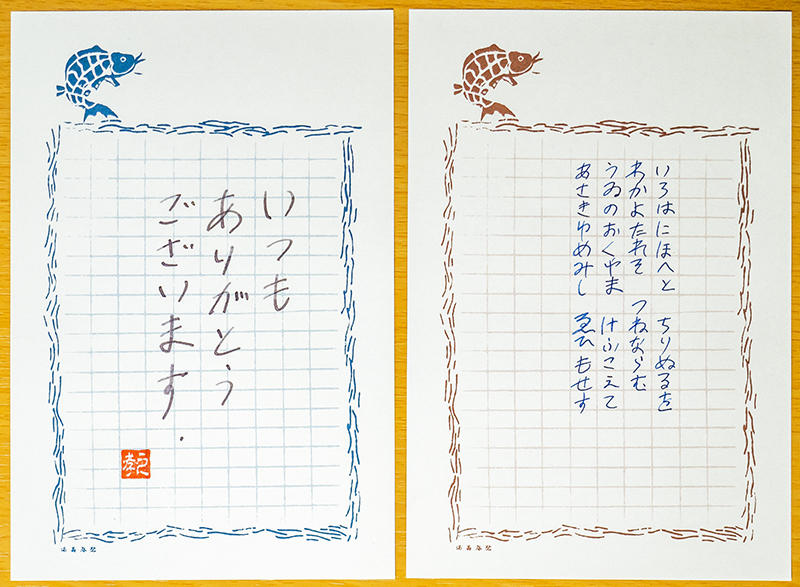 いつも
ありがとう
ございます.
いろはにほへと ちりぬるを
わかよたれそ つねならむ
うゐのおくやま けふこえて
あさきゆめみし ゑひもせす